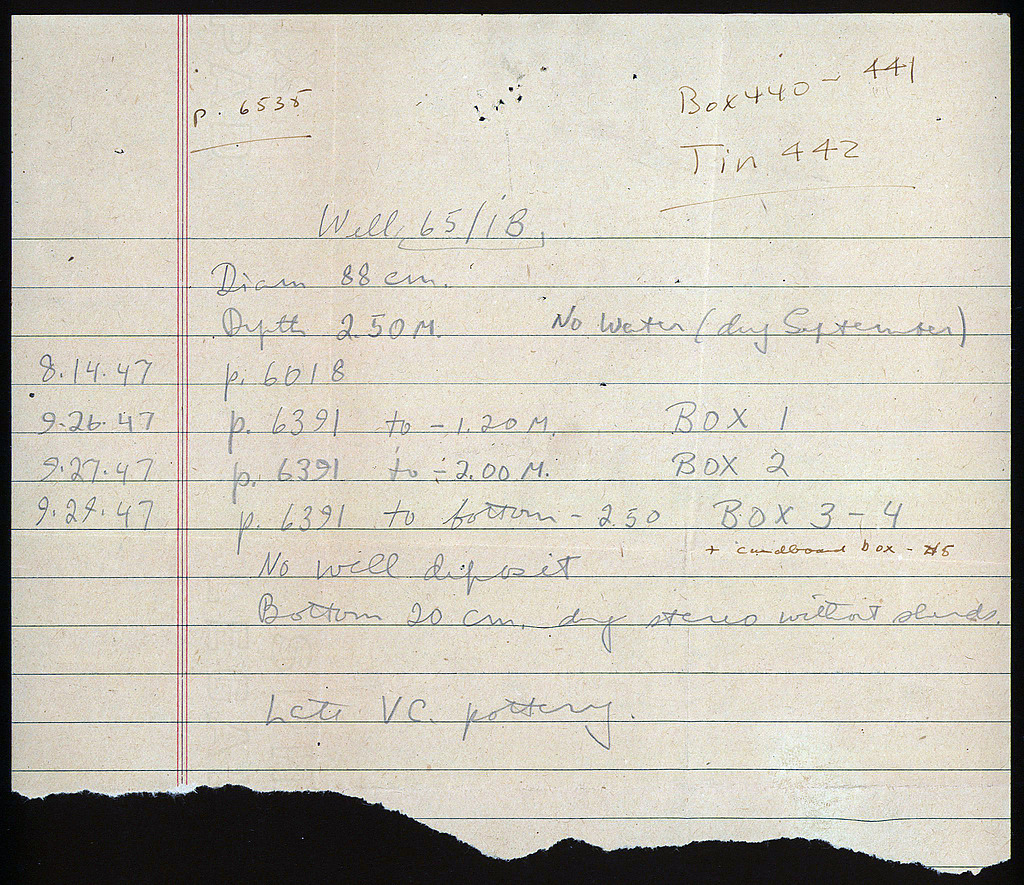 p. 6535
Box 440 - 441
Tin 442
Well 65/1B
Diam 88 cm.
Depth 2.50 M. No Water (dug September)
8.14.47 p. 6018
9.26.47 p. 6391 to - 1.20 M. BOX 1
9.27.47 p. 6391 to - 2.00 M. BOX 2
9.29.47 p. 6391 to bottom - 2.50 BOX 3 - 4
+ cardboard box - #5
No well deposit
Bottom 20 cm. dug stereo without sherds.
Late V C. pottery.